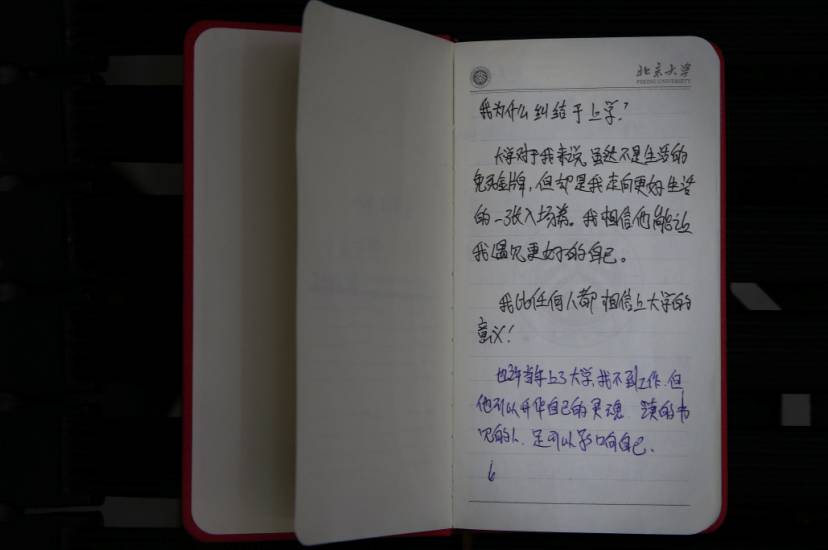 北京大学
PEKING UNIVERSITY
我为什么纠结于上学？
大学对于我来说，虽然不是生活的
免死金牌，但却是我走向更好生活
的一张入场券。我相信他能让
我遇见更好的自己。
我比任何人都相信上大学的
意义！
也许当年上了大学，我不到工作，但
他可以升华自己的灵魂 读的书
见的人，足可以影响自己.